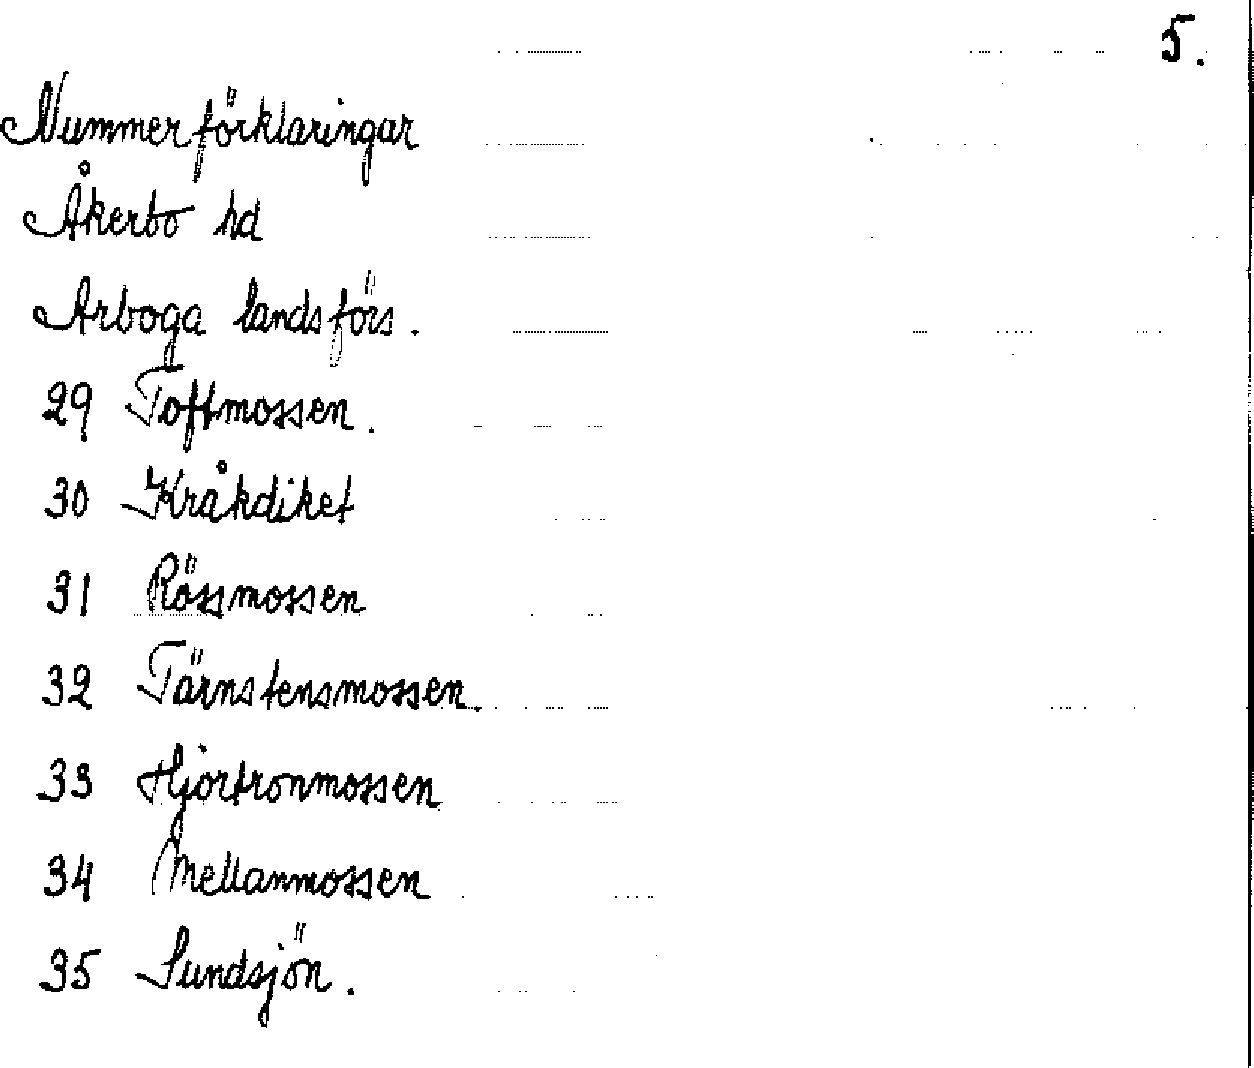 5.
Nummerförklaringar
Åkerbo hd
Arboga landsförs.
29 Toftmossen.
30 Kråkdiket
31 Rössmossen
32 Tärnstensmossen.
33 Hjortronmossen
34 Mellanmossen
35 Sundsjön.